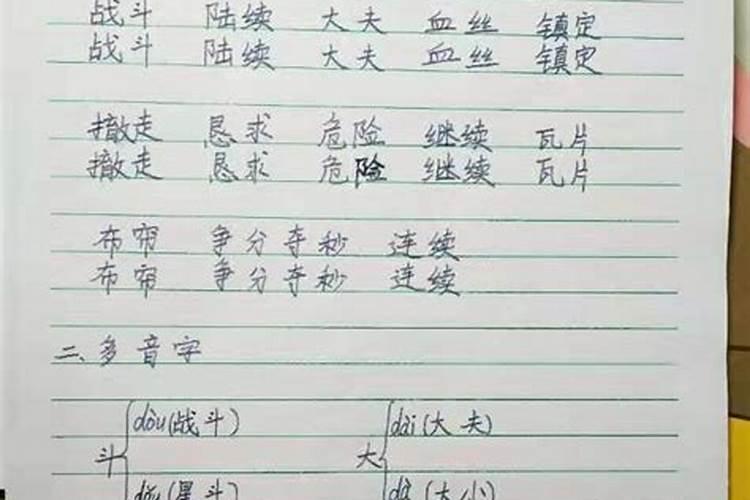 战斗 陆续 大夫 血丝 镇定
战斗 陆续 大夫 血丝 镇定
撤走 恳求 危险 继续 瓦片
撤走 恳求 危险 继续 瓦片
布帘 争分夺秒 连续
布帘 争分夺秒 连续
二、多音字
dòu(战斗) dài(大夫)
斗 大
dǒu(星斗) dà(大小)